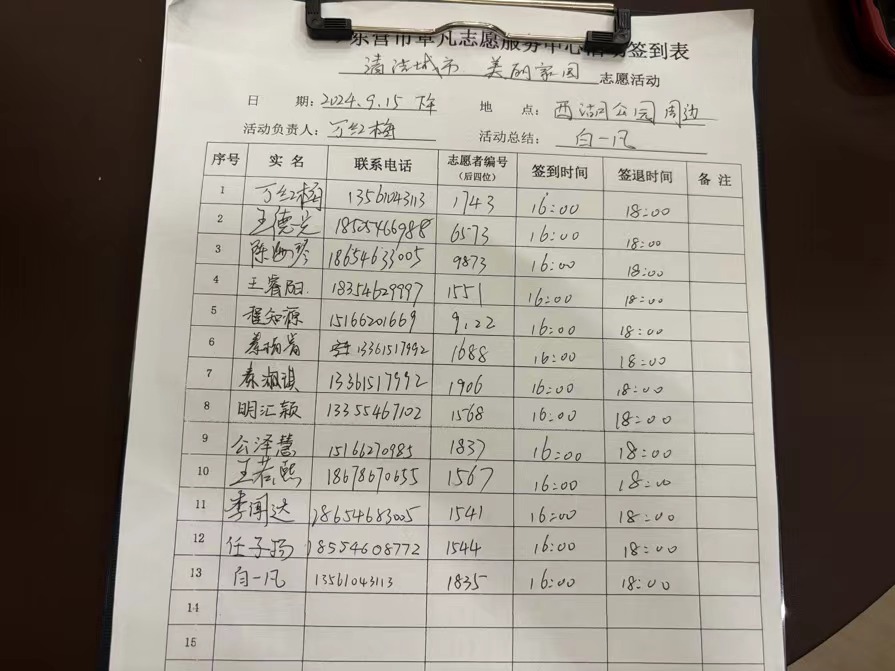 东营市草凡志愿服务中心活动签到表
清洁城市 美丽家园 志愿活动
日 期：2024.9.15 下午 地 点：西湖公园周边
活动负责人：万红梅 活动总结：白一凡
序号 实名 联系电话 志愿者编号（后四位） 签到时间 签退时间 备注
1 万红梅 13561043113 1743 16:00 18:00
2 王德光 18505466988 6573 16:00 18:00
3 陈 琴 18654633005 9873 16:00 18:00
4 王睿阳 18354629997 1551 16:00 18:00
5 程知源 15166201669 9.22 16:00 18:00
6 13361517992 1688 16:00 18:00
7 秦淑琪 13361517992 1906 16:00 18:00
8 明汇颖 13355467102 1568 16:00 18:00
9 公泽慧 15166270985 1837 16:00 18:00
10 王若熙 18678670655 1567 16:00 18:00
11 李闻达 18654683005 1541 16:00 18:00
12 任子扬 18554608772 1544 16:00 18:00
13 白一凡 13561043113 1835 16:00 18:00
14
15